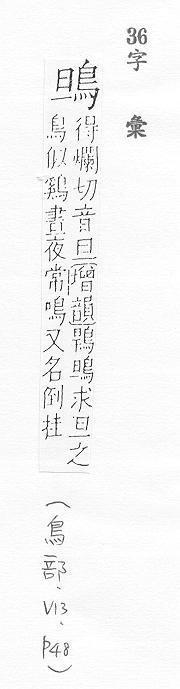 36字彙
鴠
得爛切音旦增韻鶡鴠求旦之
鳥似鷄晝夜常鳴又名倒挂
(鳥部、V13、P48)